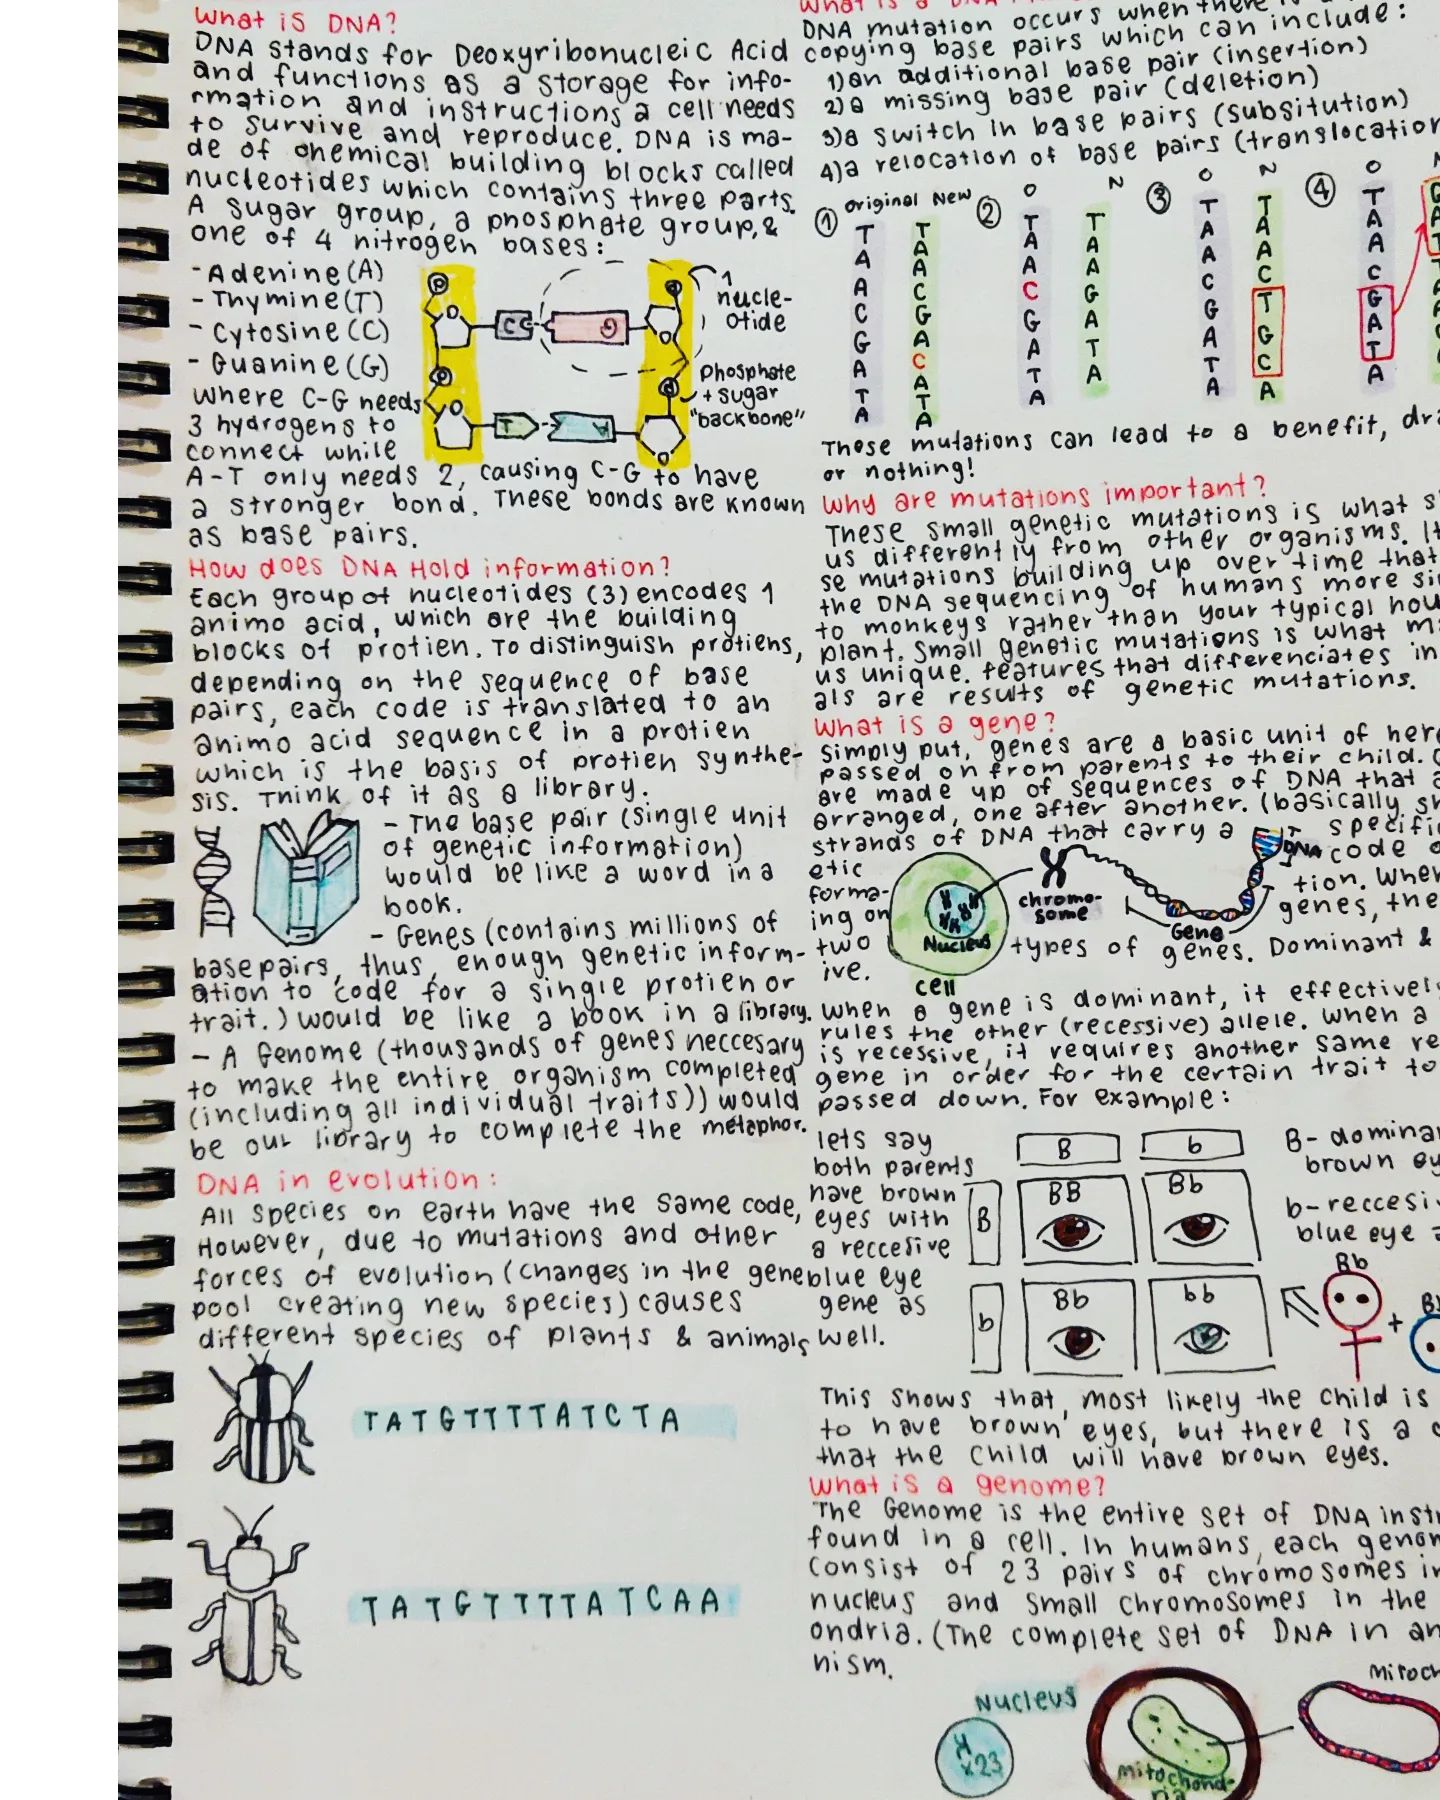 What is DNA?
DNA stands for Deoxyribonucleic Acid
and functions as a storage for info-
rmation and instructions a cell needs
to survive and reproduce. DNA is ma-
de of chemical building blocks called
nucleotides which contains three parts.
A sugar group, a phosphate group, &
one of 4 nitrogen bases:
- Adenine (A)
- Thymine (T)
- Cytosine (C)
- Guanine (G)
where C-G needs
3 hydrogens to
connect while
A-T only needs 2, causing C-G to have
a stronger bond. These bonds are known
as base pairs.
P
O
C
G
P
O
1
nucle-
otide
P
O
T
A
P
O
phosphate
+ sugar
"backbone"
How does DNA Hold information?
Each group of nucleotides (3) encodes 1
animo acid, which are the building
blocks of protien. To distinguish protiens,
depending on the sequence of base
pairs, each code is translated to an
animo acid sequence in a protien
which is the basis of protien synthe-
sis. Think of it as a library.
- The base pair (single unit
of genetic information)
would be like a word in a
book.
- Genes (contains millions of
base pairs, thus, enough genetic inform-
ation to code for a single protien or
trait.) would be like a book in a library.
- A Genome (thousands of genes neccesary
to make the entire organism completed
(including all individual traits)) would
be our library to complete the metaphor.
DNA in evolution:
All species on earth have the same code,
However, due to mutations and other
forces of evolution (changes in the gene
pool creating new species) causes
different species of plants & animals
TATGTTTTATCTA
TATGTTTTATCAA
What is a DNA
DNA mutation occurs when there is
copying base pairs which can include:
1) an additional base pair (insertion)
2) a missing base pair (deletion)
3) a switch in base pairs (subsitution)
4) a relocation of base pairs (translocation
1 Original New
TAACGATA
TAACGACATA
2 O N
TAACGATA
TAAGATA
3 O N
TAACGATA
TAACTGCA
4 O
TAACGATA
These mutations can lead to a benefit,
or nothing!
Why are mutations important?
These small genetic mutations is what
us differently from other organisms.
se mutations building up over time that
the DNA sequencing of humans more
to monkeys rather than your typical
plant. Small genetic mutations is what
us unique. features that differenciates
als are results of genetic mutations.
What is a gene?
Simply put, genes are a basic unit of
passed on from parents to their child.
are made up of sequences of DNA that
arranged, one after another. (basically
strands of DNA that carry a specific
etic code
forma- tion. When
ing on genes, the
two types of genes. Dominant &
ive.
Nucleus
cell
chromo-
some
Gene
DNA
When a gene is dominant, it effectively
rules the other (recessive) allele. When a
is recessive, it requires another same
gene in order for the certain trait to
passed down. For example:
lets say
both parents
have brown
eyes with
a reccesive
blue eye
gene as
well.
B b
B BB Bb
b Bb bb
B-
brown
b-
blue eye
Bb
+
This shows that, most likely the child is
to have brown eyes, but there is a
that the child will have brown eyes.
What is a genome?
The Genome is the entire set of DNA
found in a cell. In humans, each
consist of 23 pairs of chromosomes
nucleus and small chromosomes in the
ondria. (The complete set of DNA in
nism.
Nucleus
x23
mitochond-
ria